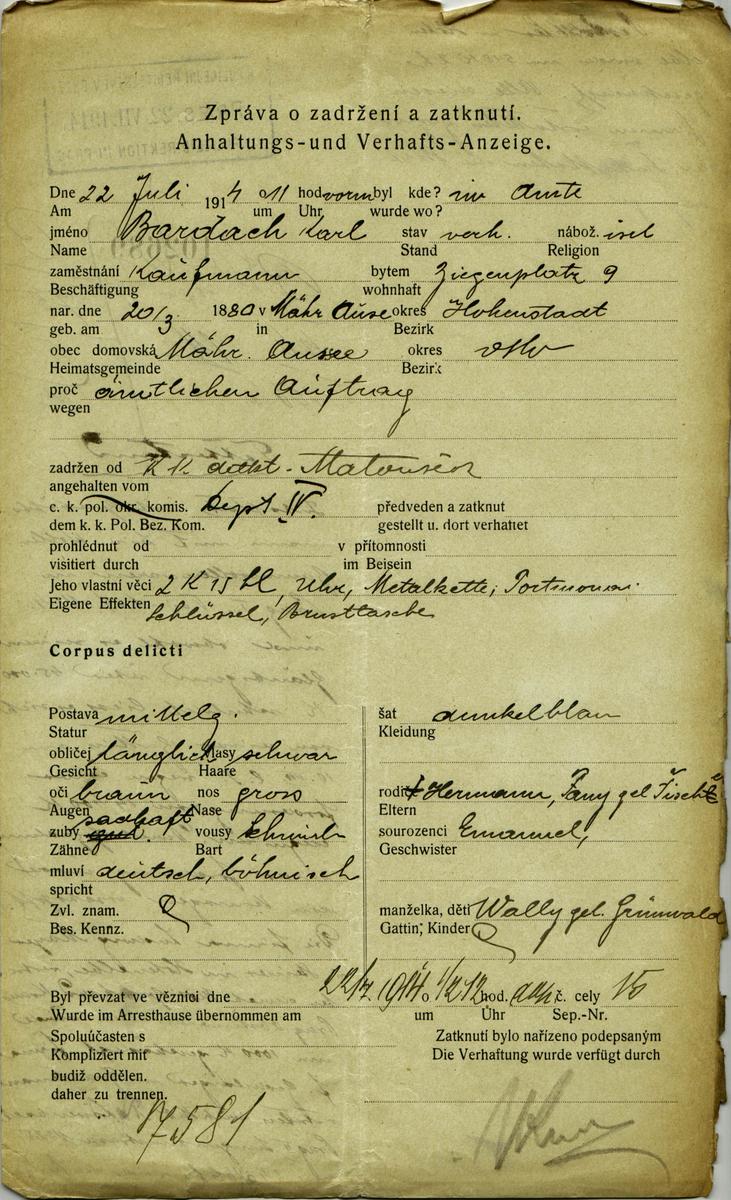 Zpráva o zadržení a zatknutí.
Anhaltungs-und Verhafts-Anzeige.
Dne 22 Juli 1914 o 11 hod vorm byl kde? im Amte
Am um Uhr wurde wo?
jméno Bardach Karl stav verh. nábož. isrl
Name Stand Religion
zaměstnání Kaufmann bytem Ziegenplatz 9
Beschäftigung wohnhaft
nar. dne 20/3 1880 v Mähr Ausee okres Hohenstadt
geb. am in Bezirk
obec domovská Mähr. Ausee okres dtto
Heimatsgemeinde Bezirk
proč ämtlichen Auftrag
wegen
zadržen od K K Matoušek
angehalten vom
c. k. pol. okr. komis. Dept IV.
předveden a zatknut
dem k. k. Pol. Bez. Kom. gestellt u. dort verhaftet
prohlédnut od v přítomnosti
visitiert durch im Beisein
Jeho vlastní věci 2 K 15 hl, Uhr, Metalkette, Portmonai
Eigene Effekten Schlüssel, Brusttasche
Corpus delicti
Postava mittelg. šat dunkelblau
Statur Kleidung
obličej länglich vlasy schwar
Gesicht Haare
oči braun nos gross rodiče Hermann, Fany gel
Augen Nase Eltern
zuby vousy Schnurb sourozenci Emanuel,
Zähne Bart Geschwister
mluví deutsch, böhmisch
spricht
Zvl. znam. manželka, děti Wally gel. Grünwald
Bes. Kennz. Gattin, Kinder
Byl převzat ve věznici dne 22/7. 1914 o 1/2 12 hod. č. cely 15
Wurde im Arresthause übernommen am um Uhr Sep.-Nr.
Spoluúčasten s Zatknutí bylo nařízeno podepsaným
Kompliziert mit Die Verhaftung wurde verfügt durch
budiž oddělen.
daher zu trennen.
17581